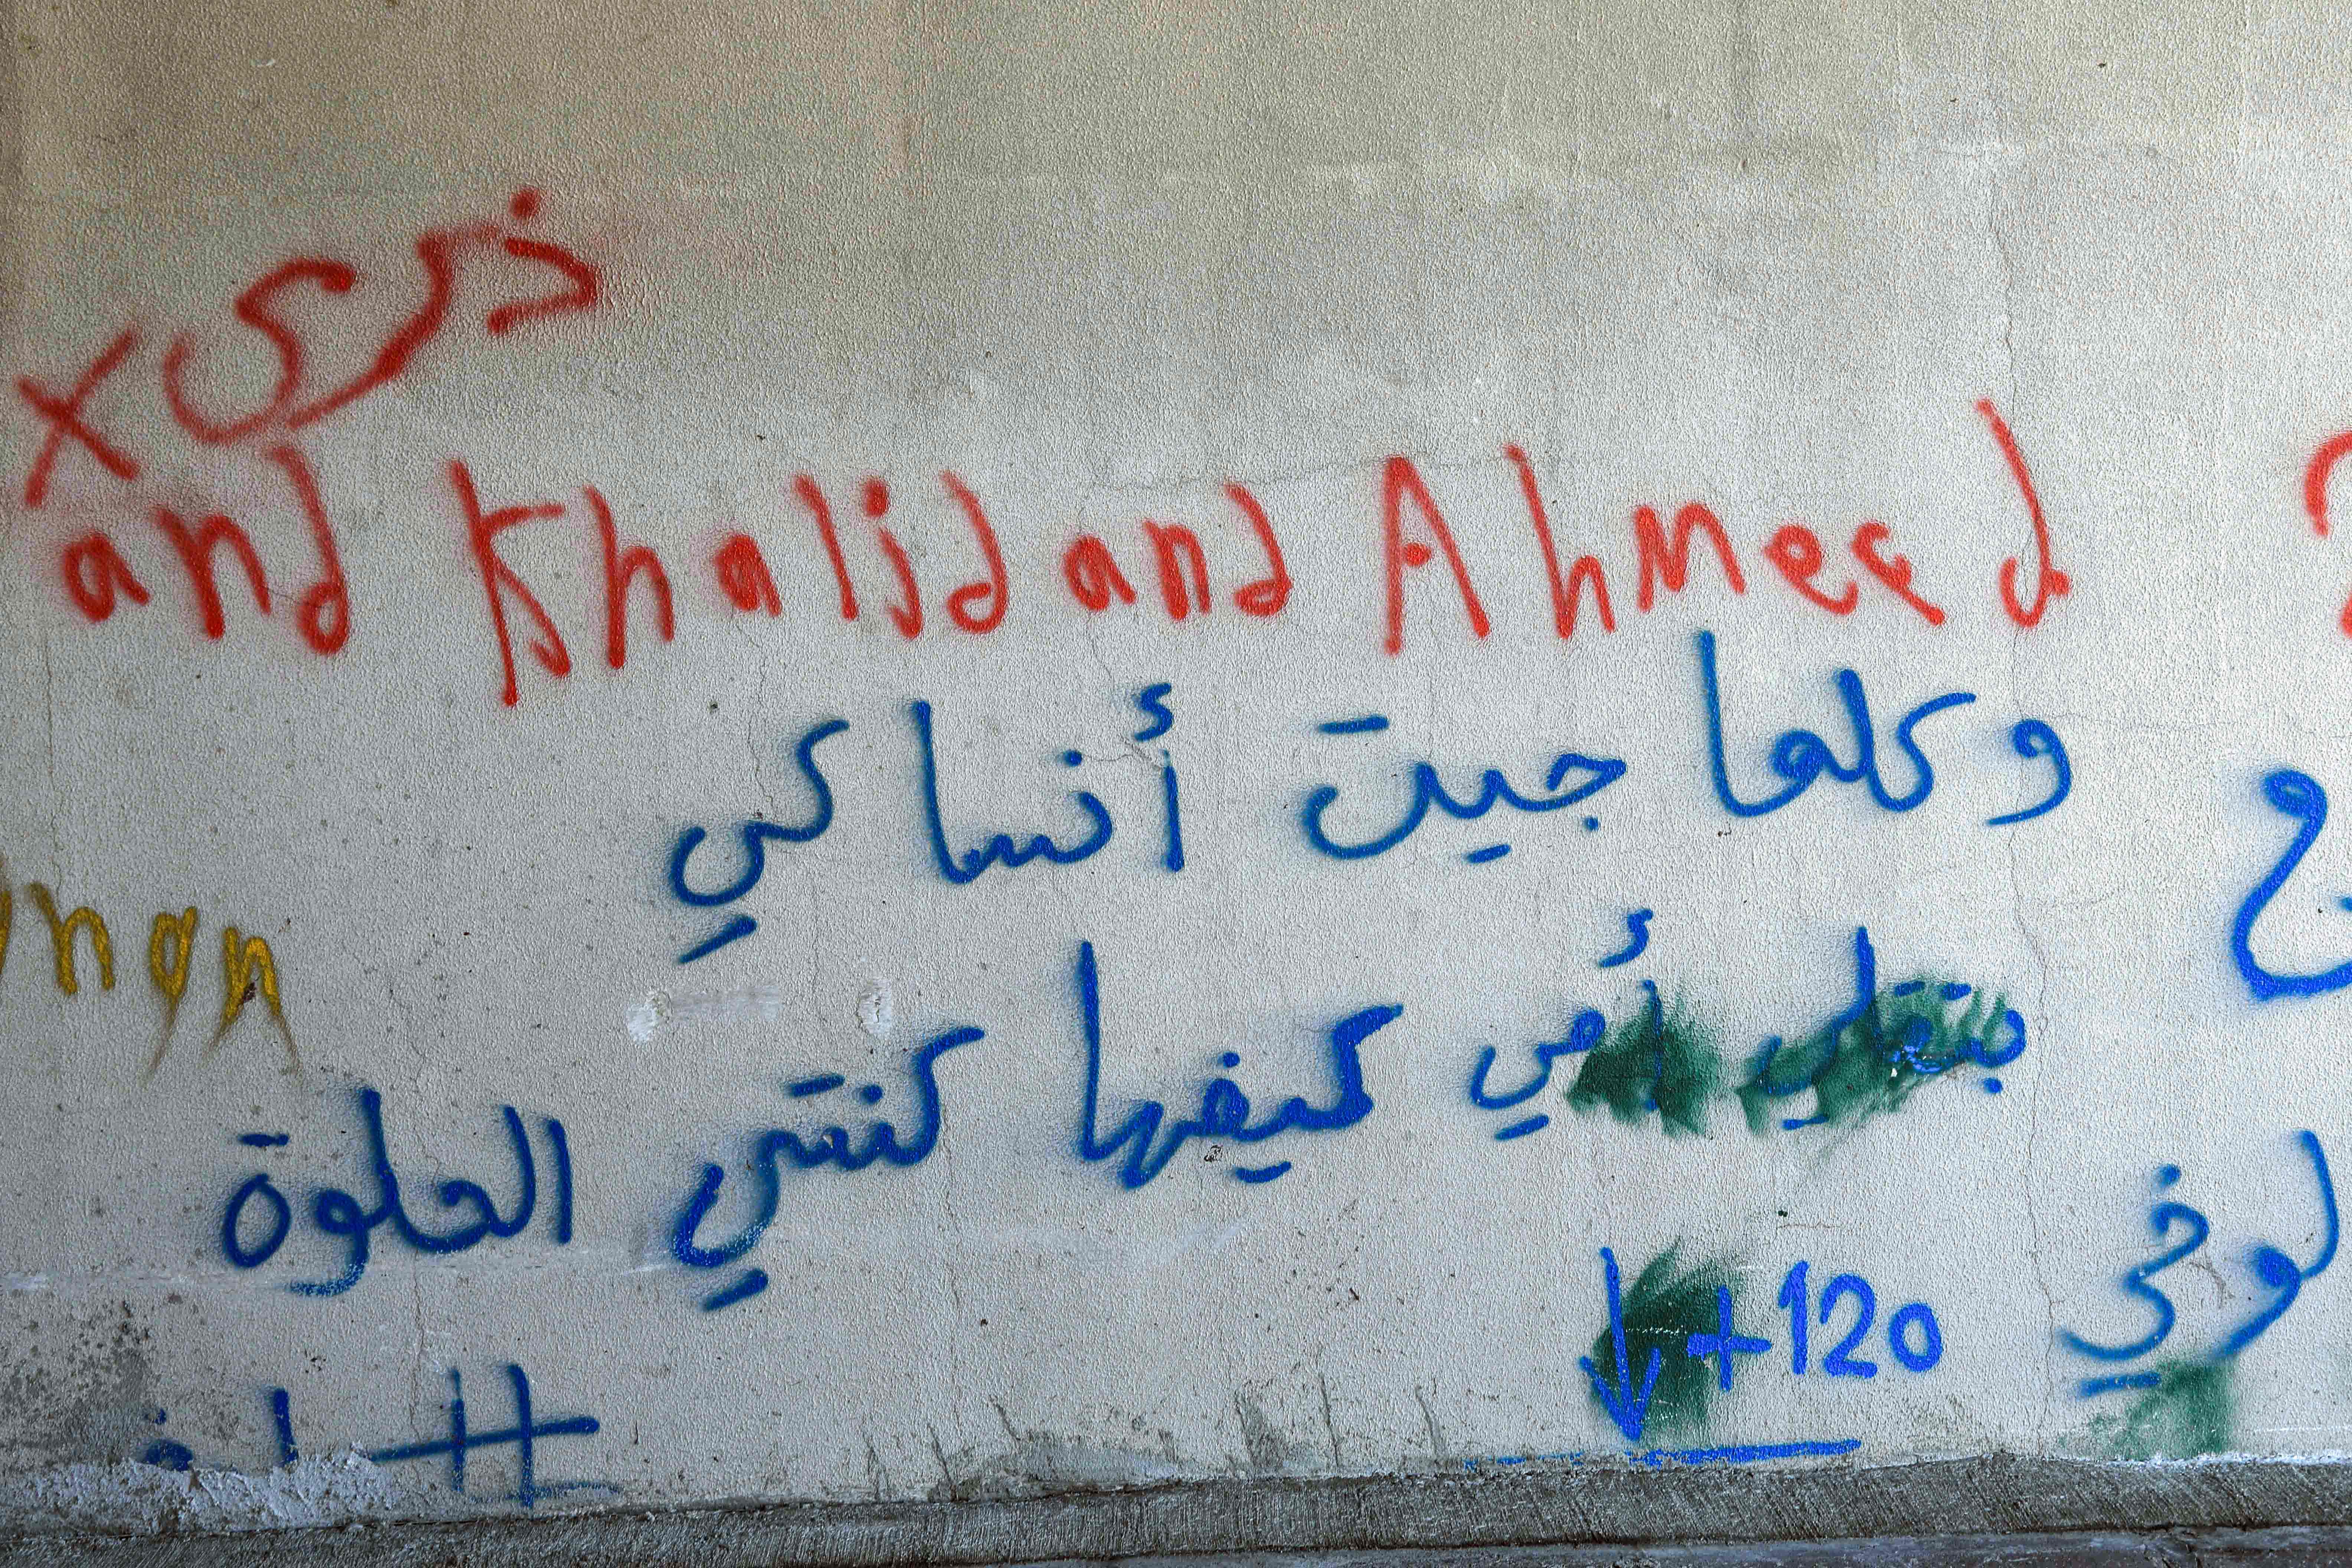 ذكرى
and Khalid and Ahmeed
وكلما جيت أنساكي
بتقلي أمي كيفها كنتي الحلوة
+120
#